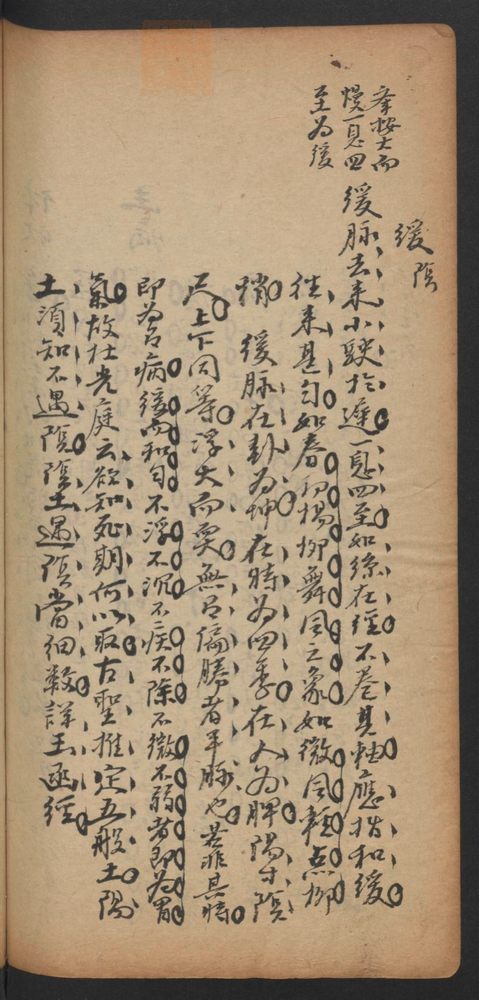 緩 陰
舉按大而
慢一息四
至為緩
緩脉去来小駃於遲一息四至如絲在経不卷其軸應指和緩
徃来甚匀如春初楊柳舞風之象如微風軽点柳
梢 緩脉在卦為坤在時為四季在人為脾陽寸陰
尺上下同等浮大而耎無有偏勝者平脉也若非其時
即為有病緩而和匀不浮不沉不疾不除不微不弱者即為胃
氣故杜光庭云欲知死期何以取古聖推定五般土陽
土須知不遇陰陰土遇陰當細數詳玉函經